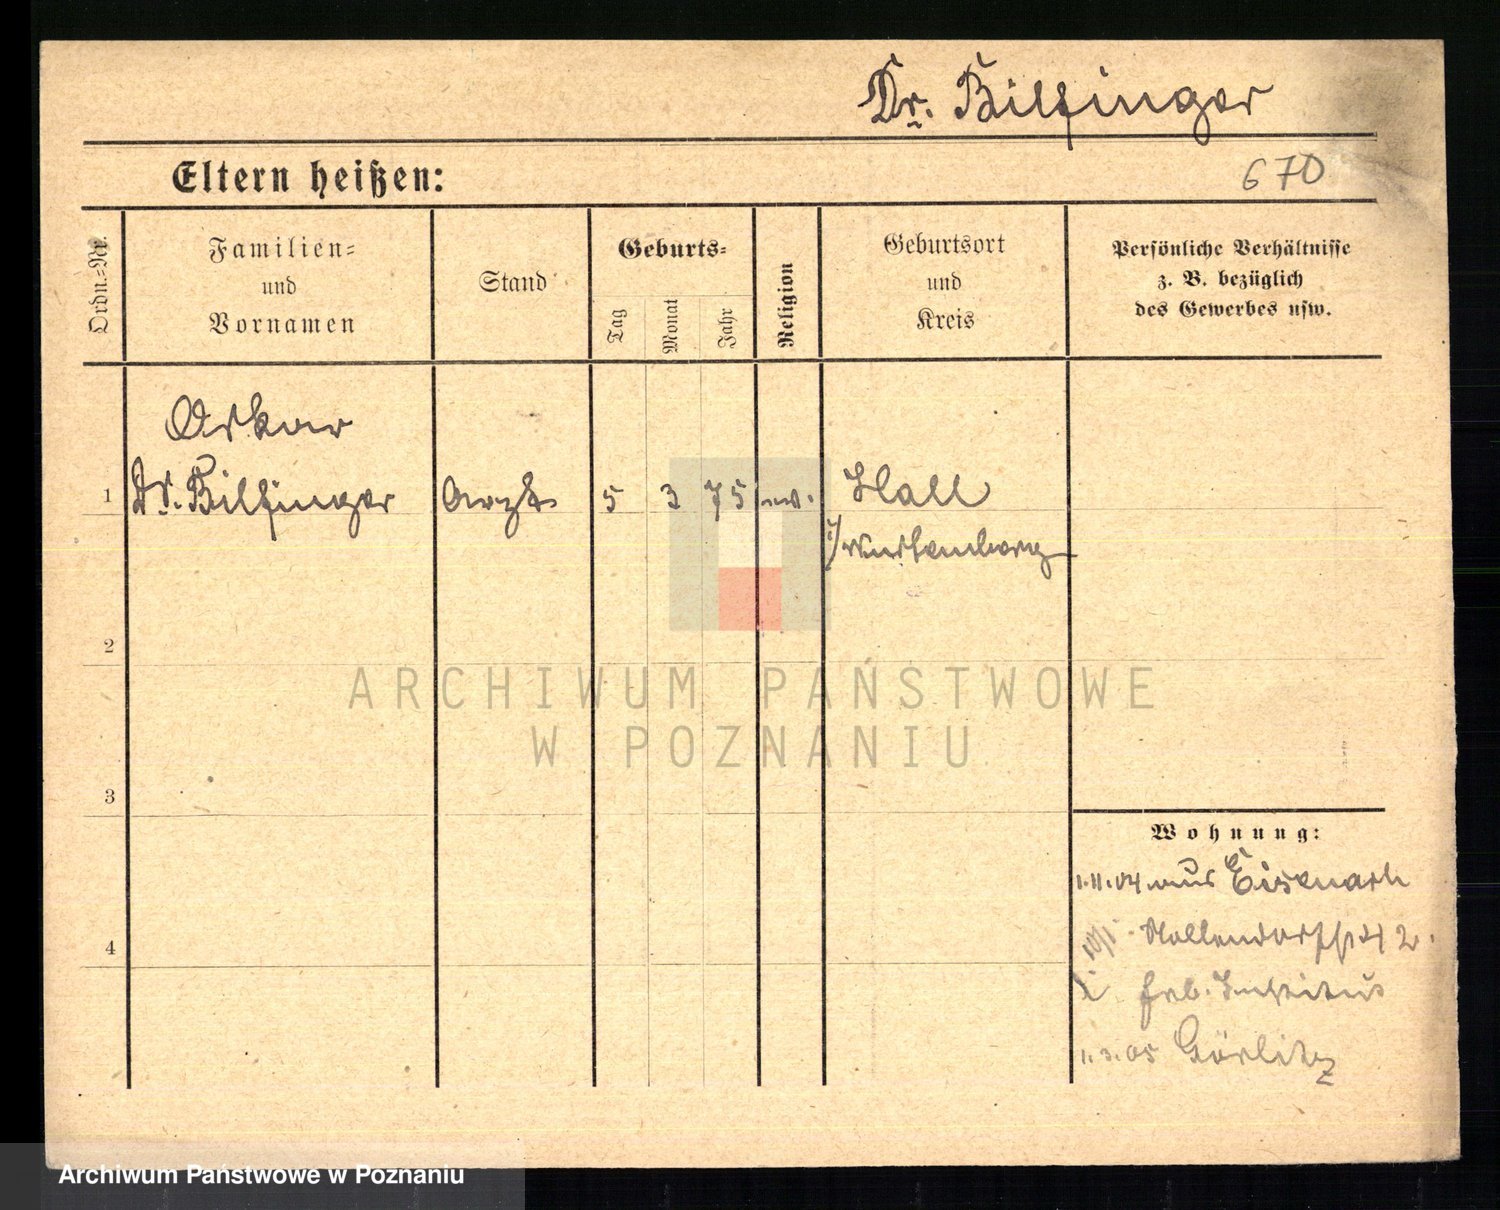 Dr. Bilfinger
Eltern heißen:
670
Ordn.=Nr.
Familien=
und
Vornamen
Stand
Geburts=
Tag
Monat
Jahr
Religion
Geburtsort
und
Kreis
Persönliche Verhältnisse
z. B. bezüglich
des Gewerbes usw.
Oskar
1 Dr. Bilfinger Arzt 5 3 75 ev. Hall
i/ Wurtemberg
2
3
4
Wohnung:
1.11.04 aus Eisenach
Nollendorfstr 42.
Institut
1.3.05 Görlitz
ARCHIWUM PAŃSTWOWE
W POZNANIU
Archiwum Państwowe w Poznaniu